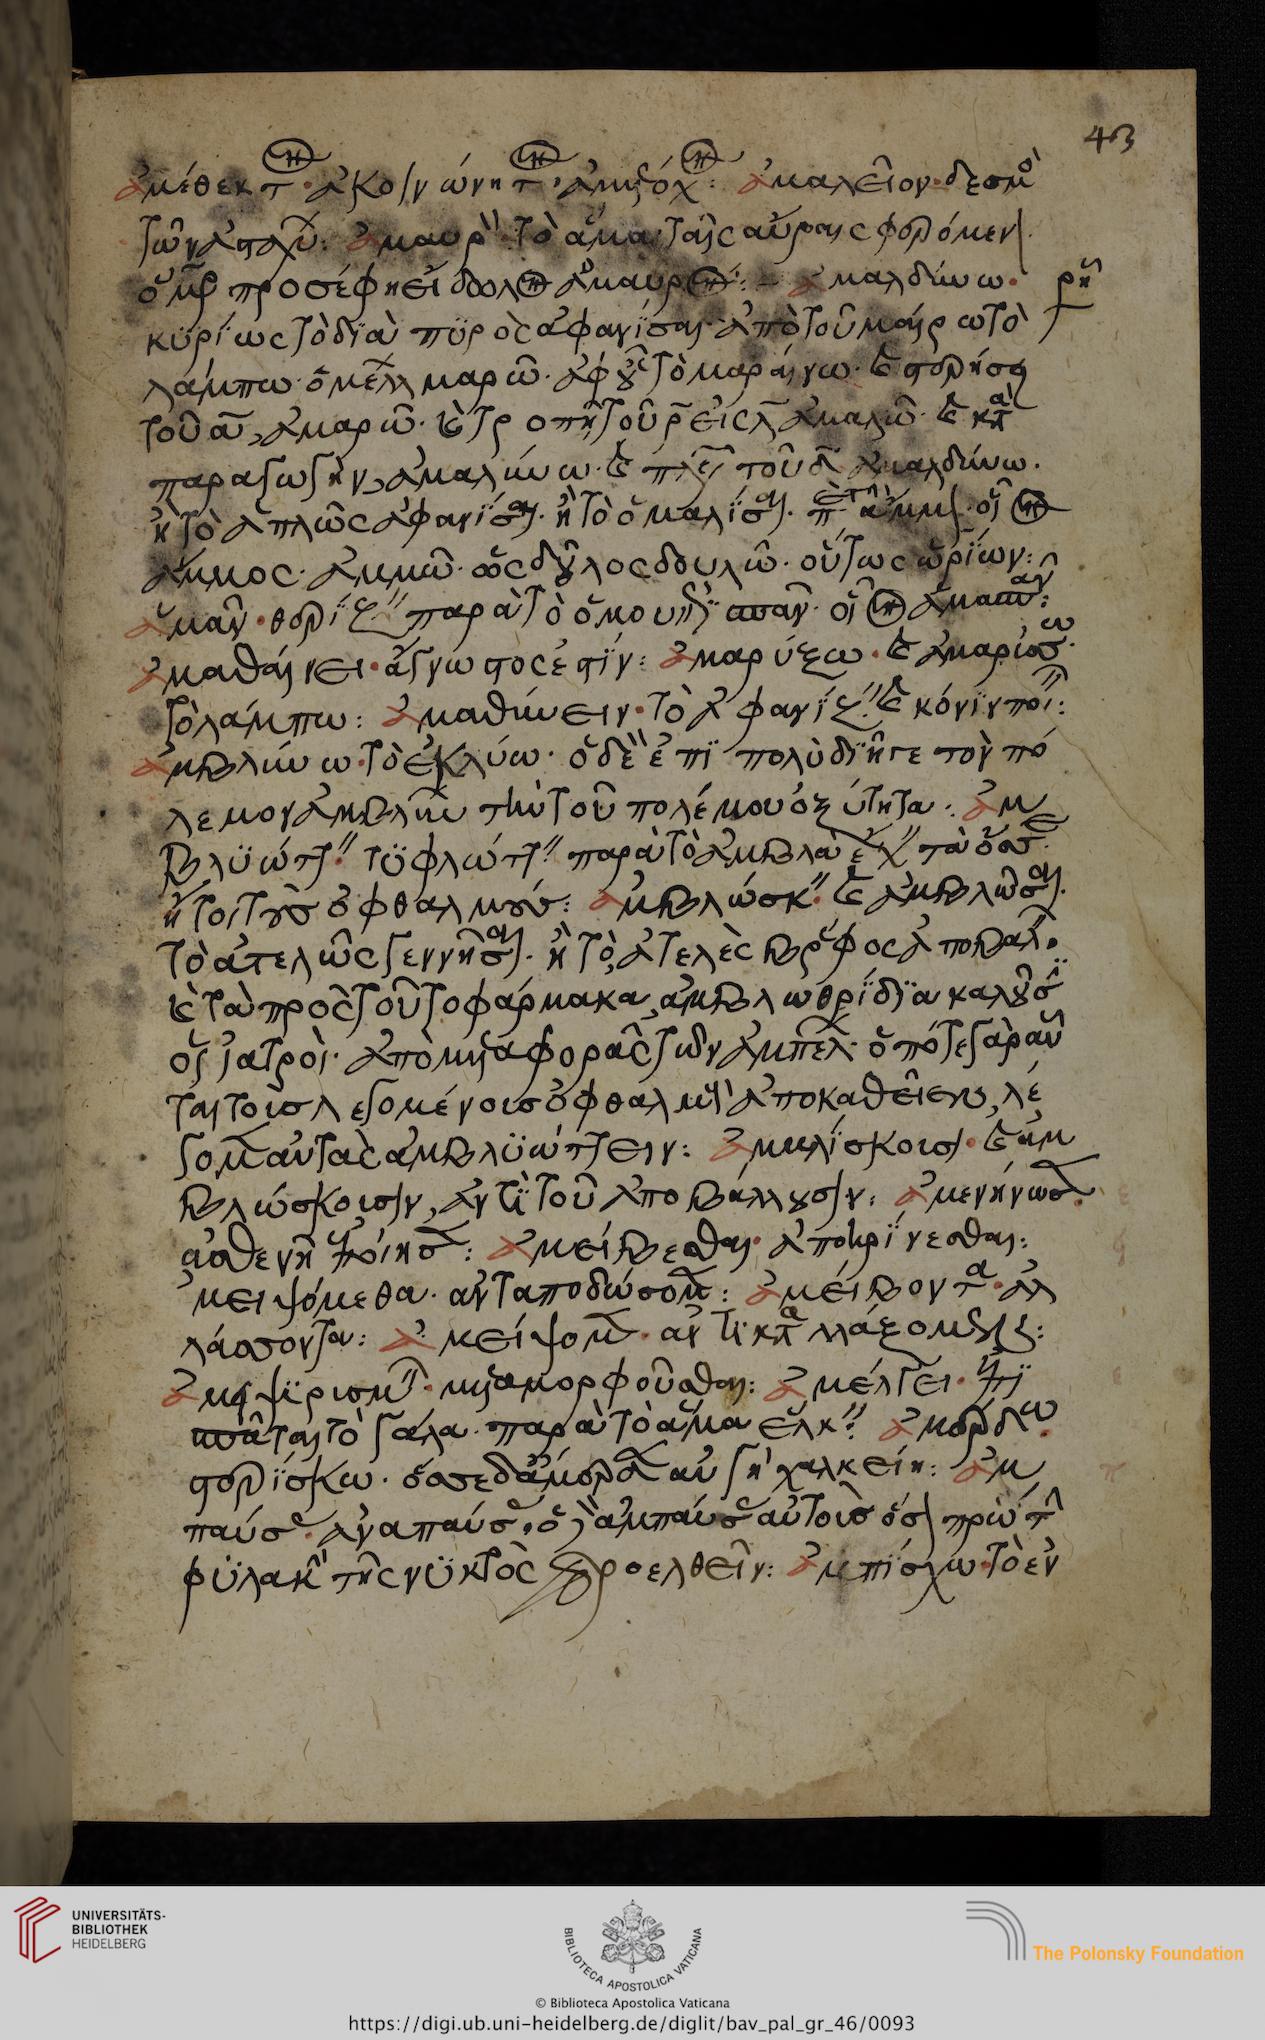 43
ἀμέθεκτ · ἀκοινώνητ · ἀμετόχ : ἀμαλεῖον · δεσμὸ
τῶν ἀσταχύ : ἀμαυρὰ · τὸ ἅμα ταῖς αὔραις φερόμεν
προσέφη εἴδωλον ἀμαυρόν : ἀμαλδύνω ·
κυρίως τὸ διὰ πυρὸς ἀφανίσαι · ἀπὸ τοῦ μαίρω τὸ
λάμπω · ὁ μέλλ μαρῶ · ἀφ οὗ τὸ μαραίνω · καὶ στερήσει
τοῦ α, ἀμαρῶ · καὶ τροπῇ τοῦ ρ εἰς λ ἀμαλῶ · καὶ κατὰ
παραγωγήν, ἀμαλύνω · καὶ πλε τοῦ δ ἀμαλδύνω ·
ἢ τὸ ἁπλῶς ἀφανίσαι · ἢ τὸ ὁμαλίσαι ·
ἄμμος · ἀμμῶ · ὡς δῆλος δηλῶ · οὕτως ὠρίων :
ἀμᾶν · θερίζ παρὰ τὸ ὁμοῦ
ἀμαθαίνει · ἄγνωστος ἐστίν : ἀμαρύξω · καὶ ἀμαρύσσω
τὸ λάμπω : ἀμαθύνειν · τὸ ἀφανίζ καὶ κόνιν ποι :
ἀμβλύνω · τὸ ἐκλύω · ὁ δὲ ἐπὶ πολὺ διῆγε τὸν πό
λεμον ἀμβλύν τὴν τοῦ πολέμου ὀξύτητα : ἀμ
βλυώττ · τυφλώττ παρὰ τὸ ἀμβλὰ ἔχ τὰ
ἤτοι τοὺς ὀφθαλμούς : ἀμβλώσκ · καὶ ἀμβλῶσαι
τὸ ἀτελῶς γεννῆσαι · ἢ τὸ, ἀτελὲς βρέφος ἀποβαλ ·
καὶ τὰ πρὸς τοῦτο φάρμακα, ἀμβλωθρίδια καλοῦσ
οἱ ἰατροὶ · ἀπὸ μεταφορᾶς τῶν ἀμπέλ · ὁπότε γὰρ αὗ
ται τοῖς λεγομένοις ὀφθαλμοῖ ἀποκαθεῖεν, λέ
γομ αὐτὰς ἀμβλυώττειν : ἀμβλίσκουσι · καὶ ἀμ
βλώσκουσιν, ἀντὶ τοῦ ἀποβάλλουσιν : ἀμενήνωσ ·
ἀσθενῆ ἐποίησ : ἀμείβεσθαι · ἀποκρίνεσθαι :
ἀμειψόμεθα · ἀνταποδώσομ : ἀμείβοντα · ἀλ
λάσσοντα : ἀμείψομ · ἀντικατ αλλάξομ :
μεταμορφοῦσθαι : ἀμέλγει ·
τὸ γάλα · παρὰ τὸ ἅμα ἕλκ : ἀμέρδω ·
στερίσκω · ὄσσε δ ἄμερδεν αὐγὴ χαλκείη : ἀμ
παύσ · ἀναπαύσ · ἀμπαύσ αὐτοῖς πρώτ
φυλακὴ τῆς νυκτὸς προελθεῖν : ἀμπίσχω · τὸ ἐν
UNIVERSITÄTS-
BIBLIOTHEK
HEIDELBERG
BIBLIOTECA APOSTOLICA VATICANA
The Polonsky Foundation
© Biblioteca Apostolica Vaticana
https://digi.ub.uni-heidelberg.de/diglit/bav_pal_gr_46/0093